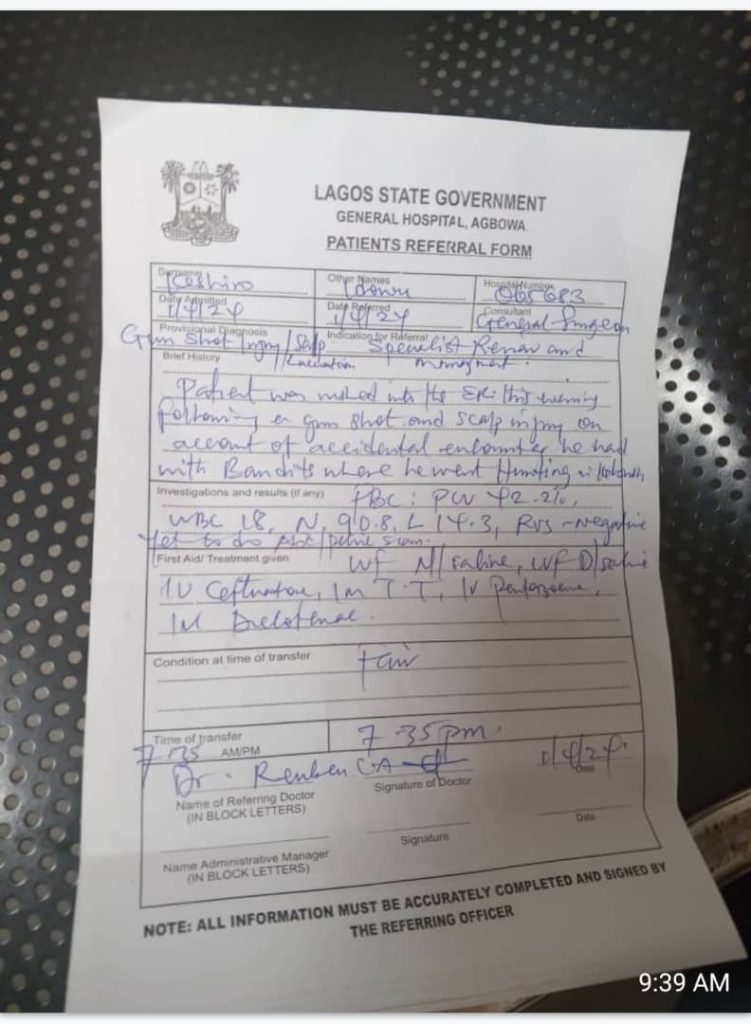 LAGOS STATE GOVERNMENT
GENERAL HOSPITAL, AGBOWA
PATIENTS REFERRAL FORM
Surname Keshiro Other Names Idowu Hospital Number 065683
Date Admitted 1/4/24 Date Referred 1/4/24 Consultant General Surgeon
Provisional Diagnosis Indication for Referral
Gun Shot injury/Scalp Specialist Review and
Brief History Laceration
Patient was rushed into the ER this evening
following a gun shot and scalp injury on
account of accidental encounter he had
with Bandits where he went Hunting
Investigations and results (if any) FBC: PCV 42.2%,
WBC 18, N, 90.8, L 14.3, RVS - negative
Yet to do scan.
First Aid/ Treatment given IVF N/saline, IVF D/saline
IV IM T.T, IV
IM
Condition at time of transfer fair
Time of transfer 7.35pm.
7.35 AM/PM
Dr. Reuben C.A 1/4/24.
Name of Referring Doctor Signature of Doctor Date
(IN BLOCK LETTERS)
Name Administrative Manager Signature Date
(IN BLOCK LETTERS)
NOTE: ALL INFORMATION MUST BE ACCURATELY COMPLETED AND SIGNED BY
THE REFERRING OFFICER
9:39 AM